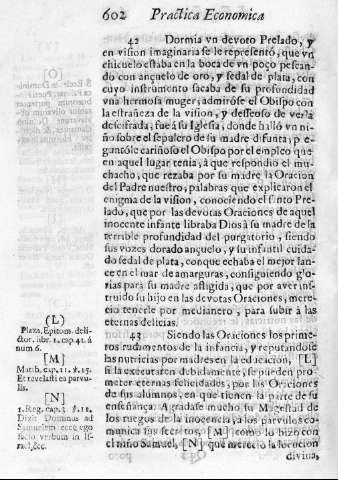 602 Practica Economica
42 Dormia vn devoto Prelado, y
en vision imaginaria se le representó, que vn
chicuelo estaba en la boca de vn poço pescan-
do con ançuelo de oro, y sedal de plata, con
cuyo instrumento sacaba de su profundidad
vna hermosa muger, admiróse el Obispo con
la estrañeza de la vision, y desseoso de verla
descifrada, fue à su Iglesia, donde halló vn ni-
ño sobre el sepulcro de su madre difunta, pre-
guntóle cariñoso el Obispo por el empleo que
en aquel lugar tenia, à que respondio el mu-
chacho, que rezaba por su madre la Oracion
del Padre nuestro, palabras que explicaron el
enigma de la vision, conociendo el santo Pre-
lado, que por las devotas Oraciones de aquel
inocente infante libraba Dios à su madre de la
terrible profundidad del purgatorio, siendo
sus vozes dorado ançuelo, y su infantil cuida-
do sedal de plata, con que echaba el mejor lan-
ce en el mar de amarguras, consiguiendo glo-
rias para su madre afligida, que por aver ins-
truido su hijo en las devotas Oraciones, mere-
cia tenerle por medianero, para subir à las
eternas delicias.
43 Siendo las Oraciones los prime-
ros rudamentos de la infancia, y reputandose
las nutricias por madres en la educacion, [L]
si la executaren debidamente, se pueden pro-
meter eternas felicidades, por las Oraciones
de sus alumnos, en que tienen la parte de su
enseñança. Agradase mucho su Magestad de
los ruegos de la inocencia, y à los parvulos co-
munica sus secretos, [M] como lo hizo con
el niño Samuel, [N] que mereció la locucion
divina,
(L)
Plaza, Epitom. deli-
ctor. libr. 1. cap. 41. à
num 6.
[M]
Matth. cap. 11. ℣. 25.
Et revelasti ea parvu-
lis.
[N]
1. Reg. cap. 3. ℣. 11.
Dixit Dominus ad
Samuelem: ecce ego
facio verbum in Is-
rael, &c.